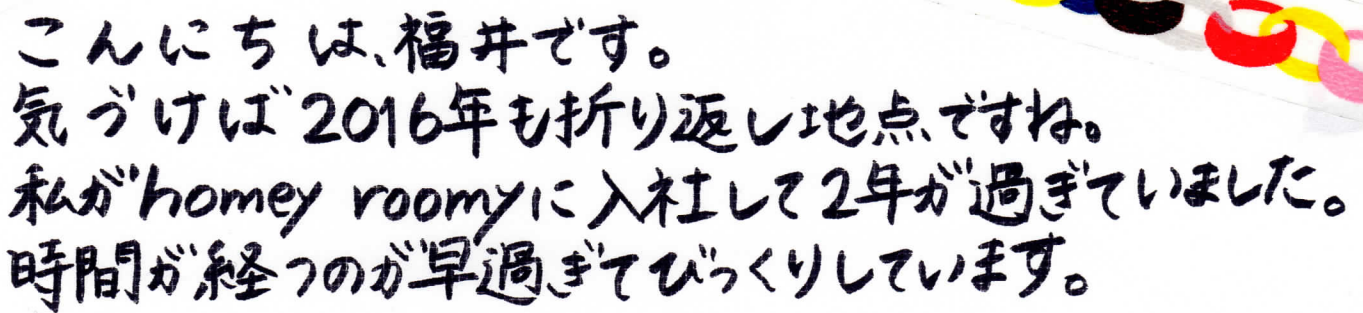 こんにちは、福井です。
気づけば2016年も折り返し地点ですね。
私がhomey roomyに入社して2年が過ぎていました。
時間が経つのが早過ぎてびっくりしています。